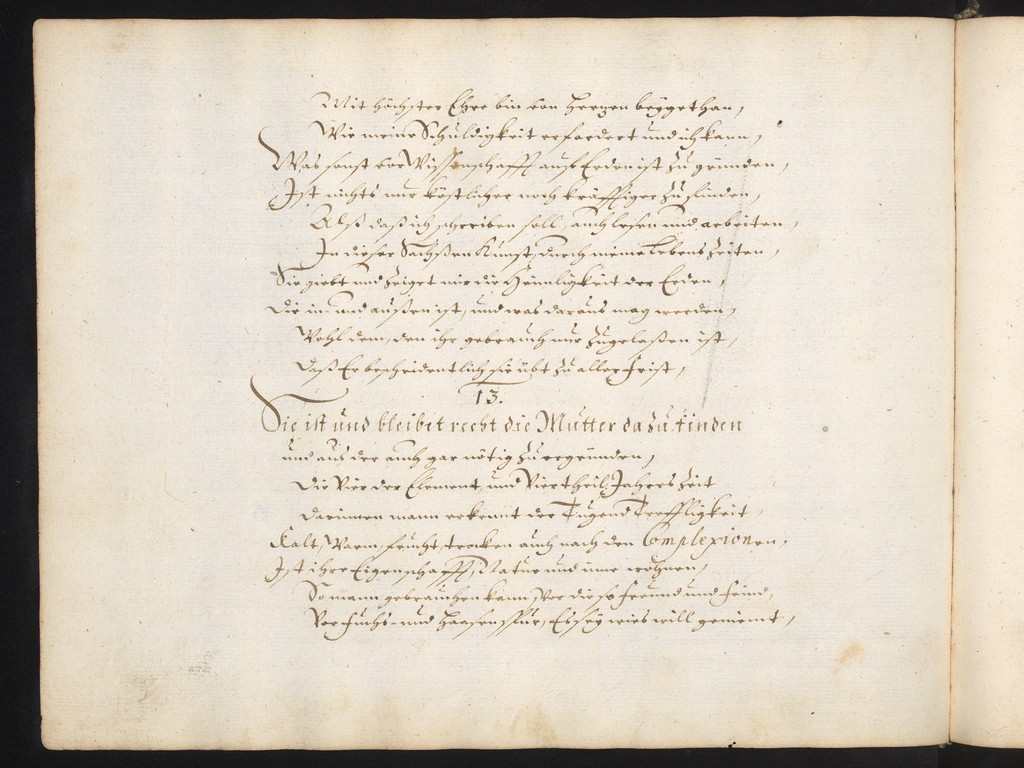 Mit höchster Ehre bin von Hertzen beygethan,
Wie meine Schuldigkeit erfordert und ich kann,
Was sonst vor Wissenschafft auf Erden ist zu gründen,
Ist nichts nur köstlicher noch kräfftiger zu finden,
Alß daß ich schreiben soll, auch lesen und arbeiten,
In dieser Kunst, durch meine Lebens Zeiten,
Sie giebt und zeiget mir die Heimligkeit der Erden,
Die in- und außen ist, und was daraus mag werden,
Wohl dem, den ihr gebrauch nur zugelaßen ist,
Daß Er bescheidentlich sie übt zu aller Frist,
13.
Sie ist und bleibet recht die Mutter da zu finden
und aus der auch gar nötig zu ergründen,
Die Vier der Element, und Viertheil Jahrs Zeit
Darinnen mann erkennt der Tugend Treffligkeit
Kalt, Warm, feucht, trocken auch nach den Complexionen,
Ist ihre Eigenschafft, Natur und inne wohnen,
So mann gebrauchen kann, vor diese Freund und Feind,
Vor Fuchs- und Haasen Spür, Es sey wies will gemeint,